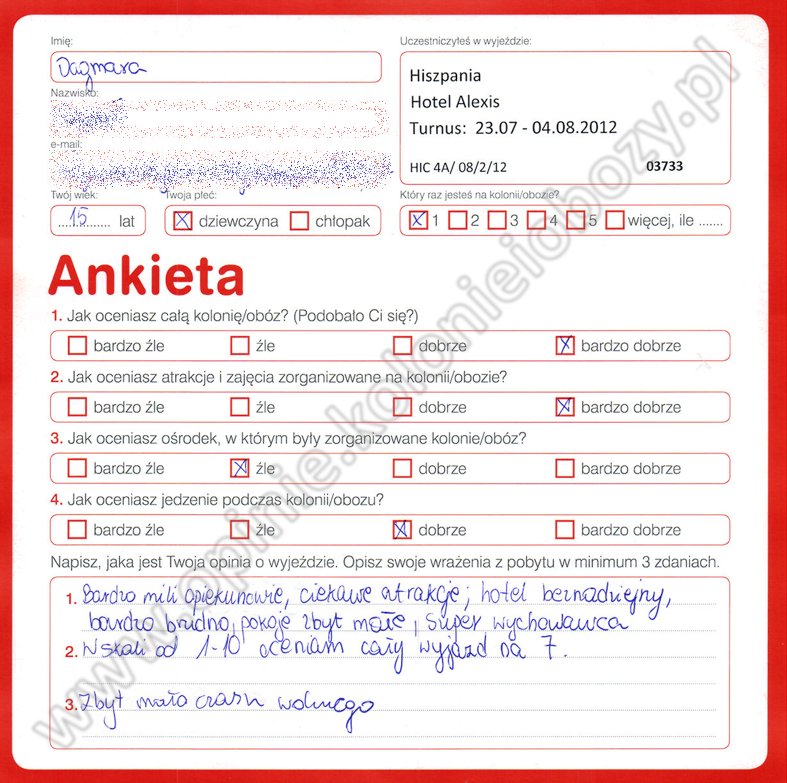 Imię:
Dagmara
Nazwisko:
e-mail:
Twój wiek:
15 lat
Twoja płeć:
dziewczyna chłopak
Uczestniczyłeś w wyjeździe:
Hiszpania
Hotel Alexis
Turnus: 23.07 - 04.08.2012
HIC 4A/ 08/2/12 03733
Który raz jesteś na kolonii/obozie?
1 2 3 4 5 więcej, ile .......
Ankieta
1. Jak oceniasz całą kolonię/obóz? (Podobało Ci się?)
bardzo źle źle dobrze bardzo dobrze
2. Jak oceniasz atrakcje i zajęcia zorganizowane na kolonii/obozie?
bardzo źle źle dobrze bardzo dobrze
3. Jak oceniasz ośrodek, w którym były zorganizowane kolonie/obóz?
bardzo źle źle dobrze bardzo dobrze
4. Jak oceniasz jedzenie podczas kolonii/obozu?
bardzo źle źle dobrze bardzo dobrze
Napisz, jaka jest Twoja opinia o wyjeździe. Opisz swoje wrażenia z pobytu w minimum 3 zdaniach.
1. Bardzo mili opiekunowie, ciekawe atrakcje; hotel beznadziejny,
bardzo brudno, pokoje zbyt małe, super wychowawca
2. W skali od 1-10 oceniam cały wyjazd na 7.
3. Zbyt mało czasu wolnego
www.opinie.kolonieiobozy.pl